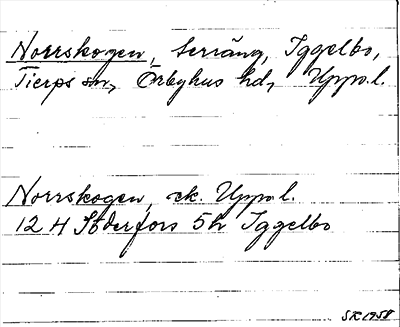 Norrskogen, terräng, Iggelbo,
Tierps sn, Örbyhus hd, Upps.l.
Norrskogen, ek. Upps.l.
12 H Söderfors 5h Iggelbo
SR 1958